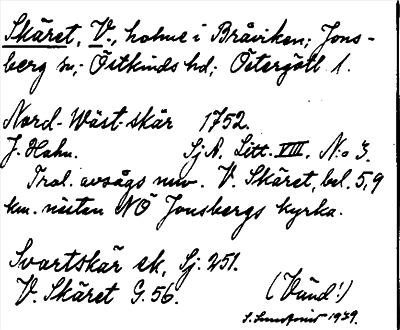 Skäret, V., holme i Bråviken; Jons-
berg sn; Östkinds hd; Östergötl. 1.
Nord-Wäst-skär 1752.
J. Hahn. SjA. Litt. VIII. N:o 3.
Trol. avsågs nuv. V. Skäret, bel. 5,9
km. nästan NÖ Jonsbergs kyrka.
Svartskär ek, Sj. 251.
V. Skäret G. 56. (Vänd!)
1939.